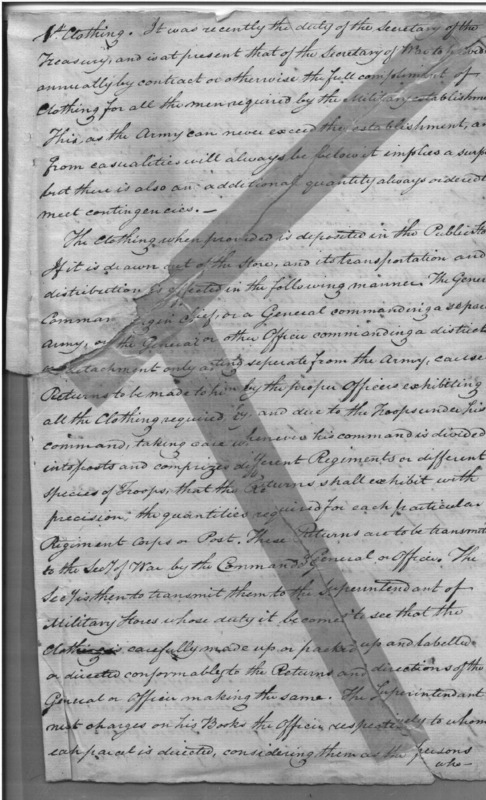 1st Clothing. It was recently the duty of the Secretary of the
Treasury, and is at present that of the Secretary of War to provide
annually by contract or otherwise the full compliment of
Clothing for all the men required by the Military establishme
This, as the Army can never exceed the establishment, a
from casualities will always be below it implies a surp
but there is also an additional quantity always ordered t
meet contingencies. —
The Clothing when provided is deposited in the Public Sto
If it is drawn out of the Store, and its transportation and
distribution is effected in the following manner. The Gene
Comman in chief, or a General commanding a separ
Army, or the General or other Officer commanding a district
or detachment only acting seperate from the Army, cause
Returns to be made to him by the proper Officers exhibiting
all the Clothing required by, and due to the Troops under his
command, taking care whenever his command is divided
into posts and comprizes different Regiments or different
species of Troops, that the Returns shall exhibit with
precision, the quantities required for each particular
Regiment Corps or Post. These Returns are to be transmit
to the Secy of War by the Commandg General or Officer. The
Secy is then to transmit them to the Superintendant of
Military Stores whose duty it becomes to see that the
Clothing is carefully made up or packed up and labelled
or directed conformably to the Returns and directions of the
General or Officer making the same. The Superintendant
next charges on his Books the Officer respectively to whom
each parcel is directed, considering them as the persons
who—